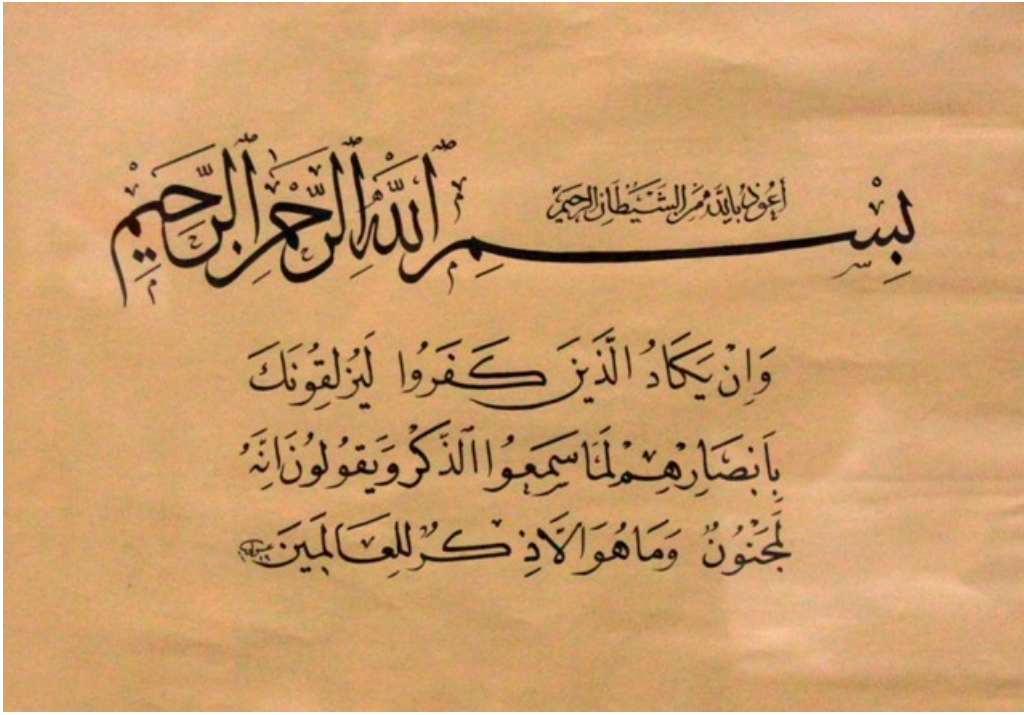 أعوذ بالله من الشيطان الرجيم
بِسْمِ اللّٰهِ الرَّحْمٰنِ الرَّحِيمِ
وَاِنْ يَكَادُ الَّذِينَ كَفَرُوا لَيُزْلِقُونَكَ
بِاَبْصَارِهِمْ لَمَّا سَمِعُوا الذِّكْرَ وَيَقُولُونَ اِنَّهُ
لَمَجْنُونٌ وَمَا هُوَ اِلَّا ذِكْرٌ لِلْعَالَمِينَ